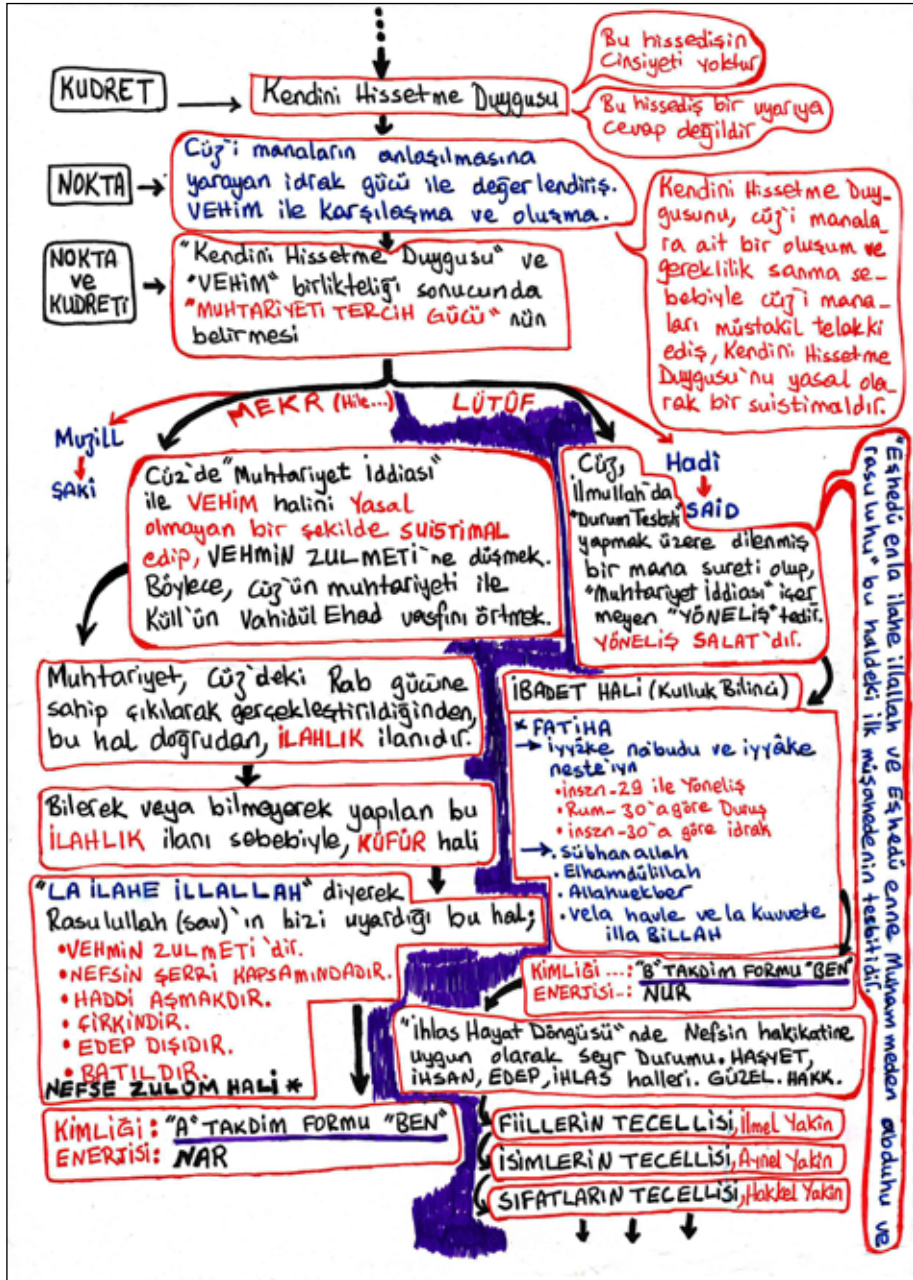 KUDRET
Kendini Hissetme Duygusu
Bu hissedişin
Cinsiyeti yoktur
Bu hissediş bir uyarıya
cevap değildir
NOKTA
Cüz'i manaların anlaşılmasına
yarayan idrak gücü ile değerlendiriş.
VEHİM ile karşılaşma ve oluşma.
Kendini Hissetme Duy-
gusunu, cüz'i manala-
ra ait bir oluşum ve
gereklilik sanma se-
bebiyle cüz'i mana-
ları müstakil telakki
ediş, Kendini Hissetme
Duygusu'nu yasal ola-
rak bir suistimaldır.
NOKTA
ve
KUDRETİ
"Kendini Hissetme Duygusu" ve
"VEHİM" birlikteliği sonucunda
"MUHTARİYETİ TERCİH GÜCÜ" nün
belirmesi
MEKR (Hile...)
LÜTUF
Muzill
ŞAKİ
Hadi
SAİD
Cüz'de "Muhtariyet İddiası"
ile VEHİM halini Yasal
olmayan bir şekilde SUİSTİMAL
edip, VEHMİN ZULMETİ'ne düşmek.
Böylece, Cüz'ün muhtariyeti ile
Küll'ün Vahidül Ehad vasfını örtmek.
Cüz,
İlmullah'da
"Durum Tesbiti"
yapmak üzere dilenmiş
bir mana sureti olup,
"Muhtariyet İddiası" içer
meyen "YÖNELİŞ"tedir.
YÖNELİŞ SALAT'dır.
"Eşhedü enla ilahe illallah ve Eşhedü enne Muhammeden abduhu ve
rasuluhu" bu haldeki ilk müşahedenin tesbitidir.
Muhtariyet, Cüz'deki Rab gücüne
sahip çıkılarak gerçekleştirildiğinden,
bu hal doğrudan, İLAHLIK ilanıdır.
Bilerek veya bilmeyerek yapılan bu
İLAHLIK ilanı sebebiyle, KÜFÜR hali
"LA İLAHE İLLALLAH" diyerek
Rasulullah (sav)'ın bizi uyardığı bu hal;
• VEHMİN ZULMETİ'dir.
• NEFSİN ŞERRİ KAPSAMINDADIR.
• HADDİ AŞMAKDIR.
• ÇİRKİNDİR.
• EDEP DIŞIDIR.
• BATILDIR.
NEFSE ZULÜM HALİ *
KİMLİĞİ: "A" TAKDİM FORMU "BEN"
ENERJİSİ: NAR
İBADET HALİ (Kulluk Bilinci)
* FATİHA
→ iyyâke na'budu ve iyyâke
neste'ıyn
• insan-29 ile Yöneliş
• Rum-30'a göre Duruş
• insan-30'a göre idrak
→ . Sübhanallah
. Elhamdülillah
. Allahuekber
. Vela havle ve la Kuvvete
illa BİLLAH
KİMLİĞİ ...: "B" TAKDİM FORMU "BEN"
ENERJİSİ..: NUR
"İhlas Hayat Döngüsü" nde Nefsin hakikatine
uygun olarak Seyr Durumu. HAŞYET,
İHSAN, EDEP, İHLAS halleri. GÜZEL. HAKK.
FİİLLERİN TECELLİSİ, İlmel Yakin
İSİMLERİN TECELLİSİ, Aynel Yakin
SIFATLARIN TECELLİSİ, Hakkel Yakin